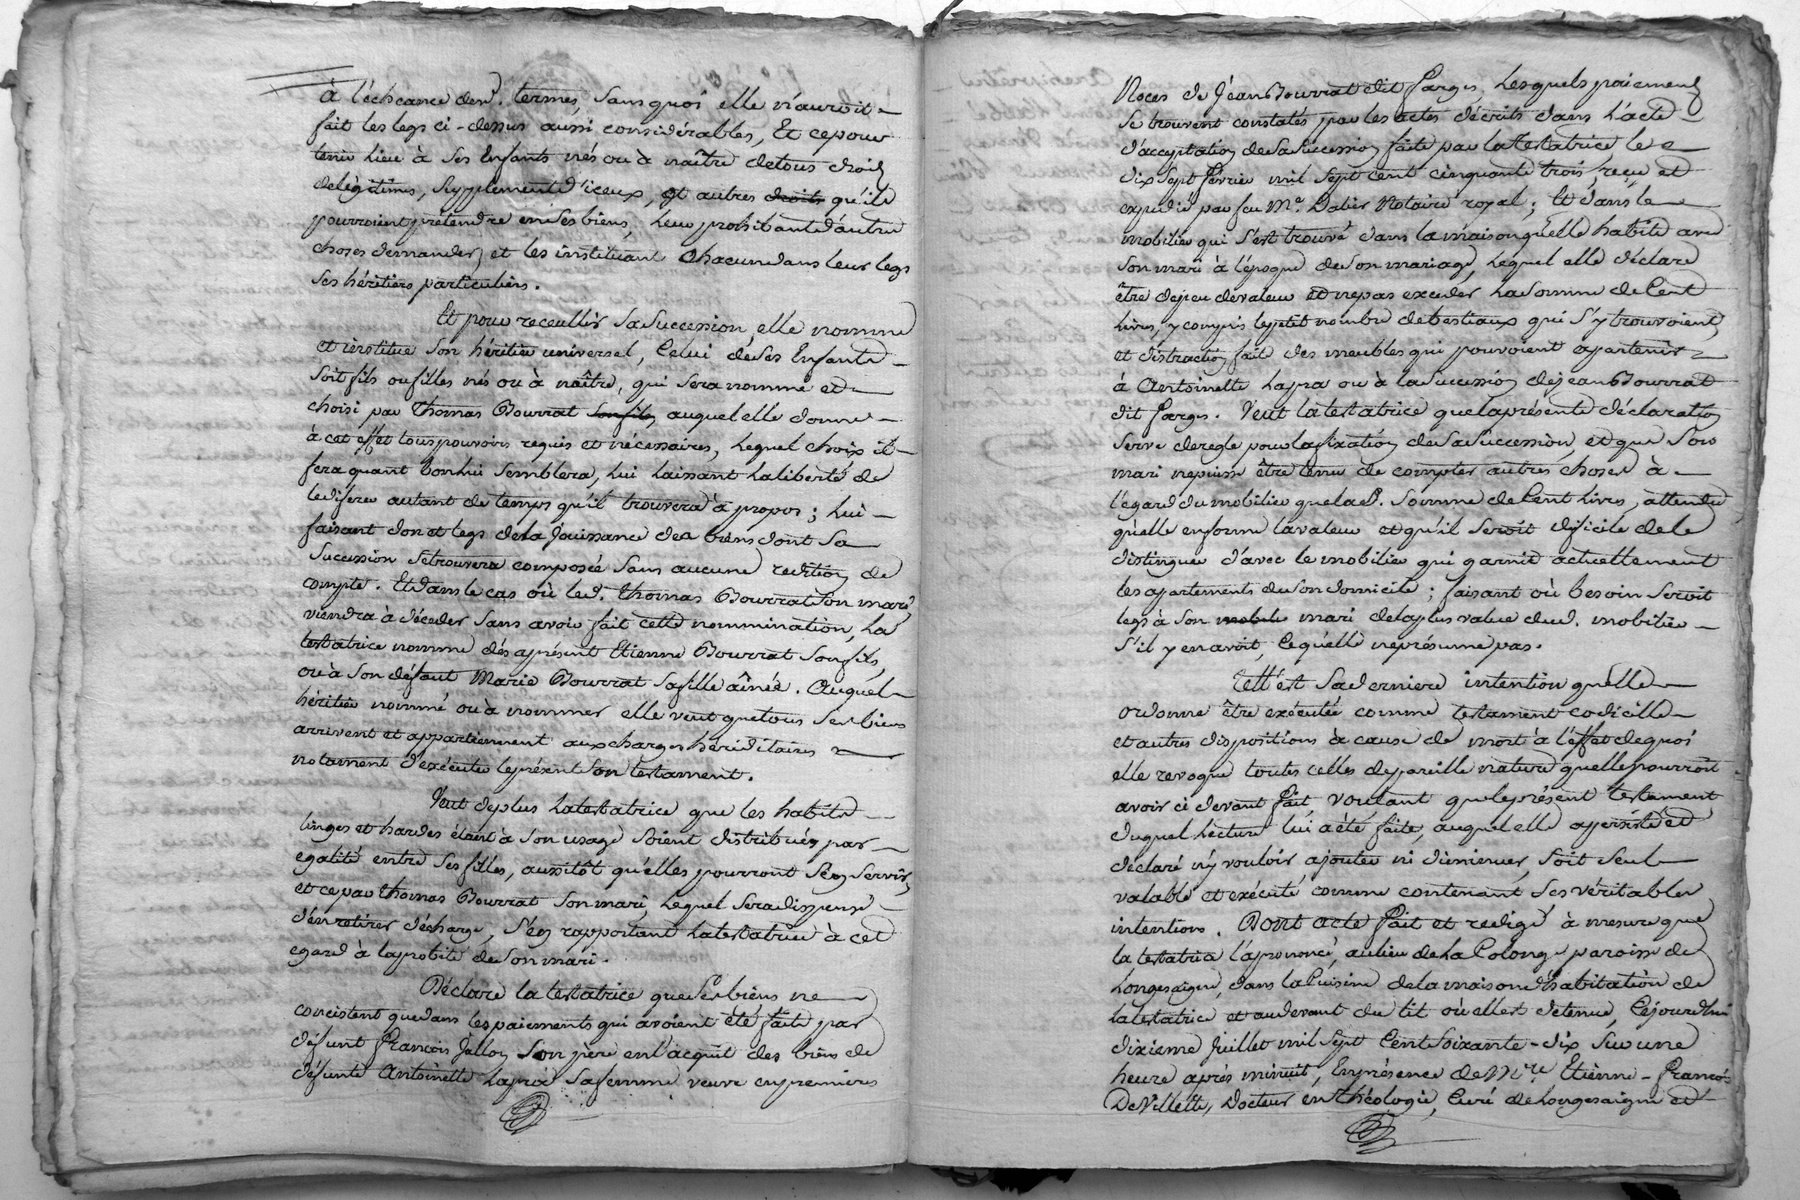 à l'échéance desd. termes, sans quoi elle n'auroit
fait les legs ci-dessus aussi considérables, Et ce pour
tenir lieu à ses Enfants nés ou à naître de tous droits
de légitimes, supplement d'iceux, et autres droits qu'ils
pourroient prétendre en ses biens, leur prohibant d'autre
choses demander, et les instituant chacun dans leur legs
ses héritiers particuliers.
Et pour receullir sa succession, elle nomme
et institue son héritier universel, Celui de ses Enfants
soit fils ou filles nés ou à naître, qui sera nommé et
choisi par Thomas Bourrat son fils, auquel elle donne
à cet effet tous pouvoirs requis et nécessaires, lequel choix il
fera quant bon lui semblera, lui laissant la liberté de
le diferer autant de temps qu'il trouvera à propos ; lui
faisant don et legs de la jouissance des biens dont sa
succession se trouvera composée sans aucune redition de
compte. Et dans le cas où led. Thomas Bourrat son mari,
viendra à décéder sans avoir fait cette nommination, la
testatrice nomme dés àprésent Etienne Bourrat son fils,
ou à son défaut Marie Bourrat sa fille aînée. Auquel
héritier nommé ou à nommer elle veut que tous ses biens
arrivent et appartiennent aux charges héréditaires
notament d'exécuter le présent son testament.
Veut de plus la testatrice que les habits
linges et hardes étant à son usage soient distribués par
egalité entre ses filles, aussitôt qu'elles pourront s'en servir,
et ce par Thomas Bourrat son mari, lequel sera dispensé
d'en retirer décharge, s'en rapportant la testatrice à cet
egard à la probité de son mari.
Déclare la testatrice que ses biens ne
concistent que dans les paiements qui avoient été faits par
défunt François Jallon son père en l'acquit des biens de
défunte Antoinette Lapra sa femme veuve en premieres
Noces de Jean Bourrat dit farges, lesquels paiements
se trouvent constatés par les actes décrits dans l'acte
d'acceptation de sa succession faite par la testatrice le
dix sept fevrier mil sept cent cinquante trois, reçu et
expedié par feu Me. Dalier Notaire royal ; Et dans le
mobilier qui s'est trouvé dans la maison qu'elle habite avec
son mari à l'époque de son mariage, lequel elle déclare
être de peu de valeur et ne pas exceder la somme de Cent
livres, y compris le petit nombre de bestiaux qui s'y trouvoient,
et distraction fait des meubles qui pouvoient apartenir
à Antoinette Lapra ou à la succession de jean Bourrat
dit farges. Veut la testatrice que la présente déclaration
serve de regle pour la fixation de sa succession, et que son
mari ne puisse être tenu de compter autres choses à
l'égard du mobilier que lad. somme de Cent livres, attendu
qu'elle en forme la valeur et qu'il seroit dificile de le
distinguer d'avec le mobilier qui garnit actuellement
les apartements de son domicile ; faisant où besoin seroit
legs à son mobilie mari de la plus value dud. mobilier
s'il y en avoit, ce qu'elle ne présume pas.
Tell'est sa derniere intention qu'elle
ordonne être exécutée comme testament codicille
et autres dispositions à cause de mort à l'effet de quoi
elle revoque toutes celles de pareille nature qu'elle pourroit
avoir ci devant fait, voulant que le présent testament
duquel lecture lui a été faite, auquel elle a persisté et
déclaré n'y vouloir ajouter ni diminuer, soit seul
valable et exécuté comme contenant ses véritables
intentions. Dont acte fait et redigé à mesure que
la testatrice l'a prononcé, au lieu de La Colonge paroisse de
Longesaigne, dans la Cuisine de la maison d'habitation de
la testatrice et au devant du lit où elle est detenue, Cejourd'hui
dixieme juillet mil sept Cent soixante-dix sur une
heure après minuit, En présence de Mre. Etienne-François
De Villette, Docteur en théologie, Curé de Longesaigne et